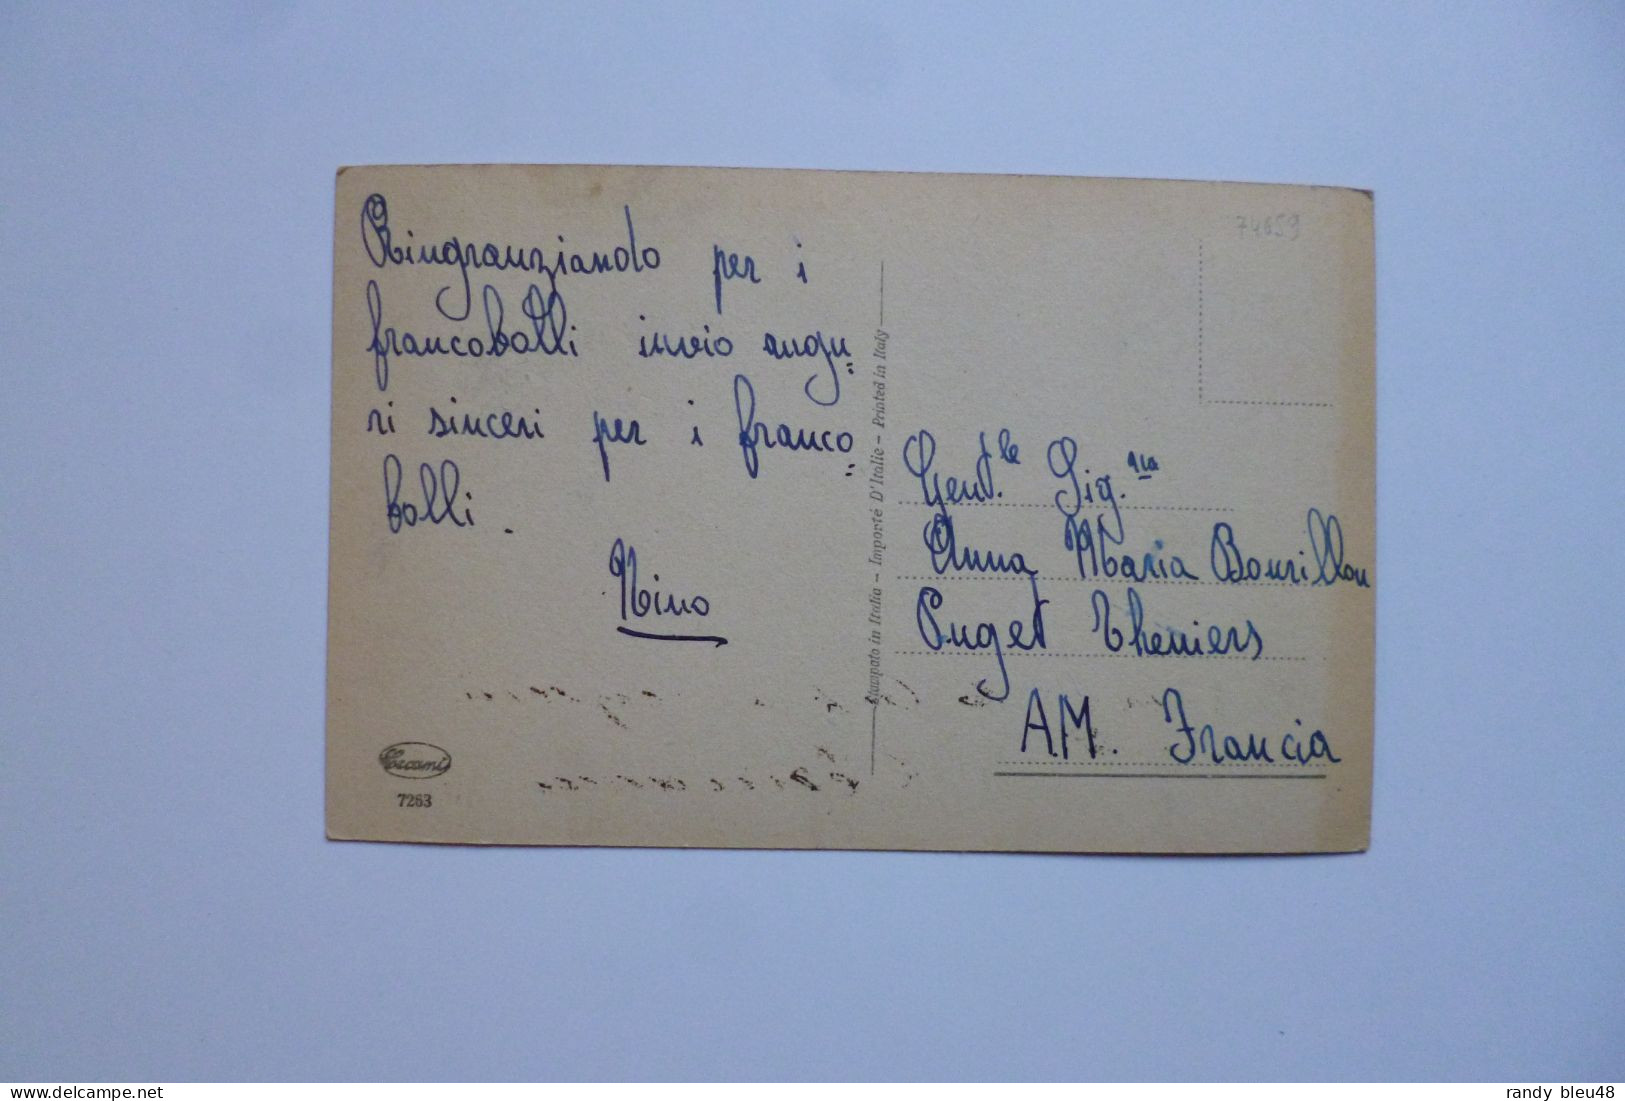 Ringranziando per i
francobolli invio augu=
ri sinceri per i franco=
bolli.
Nino
Cecami
7263
Stampato in Italia - Importé D'Italie - Printed in Italy
74659
Gent.le Sig.na
Anna Maria Bourillon
Puget Theniers
AM. Francia
delcampe.net
randy bleu48